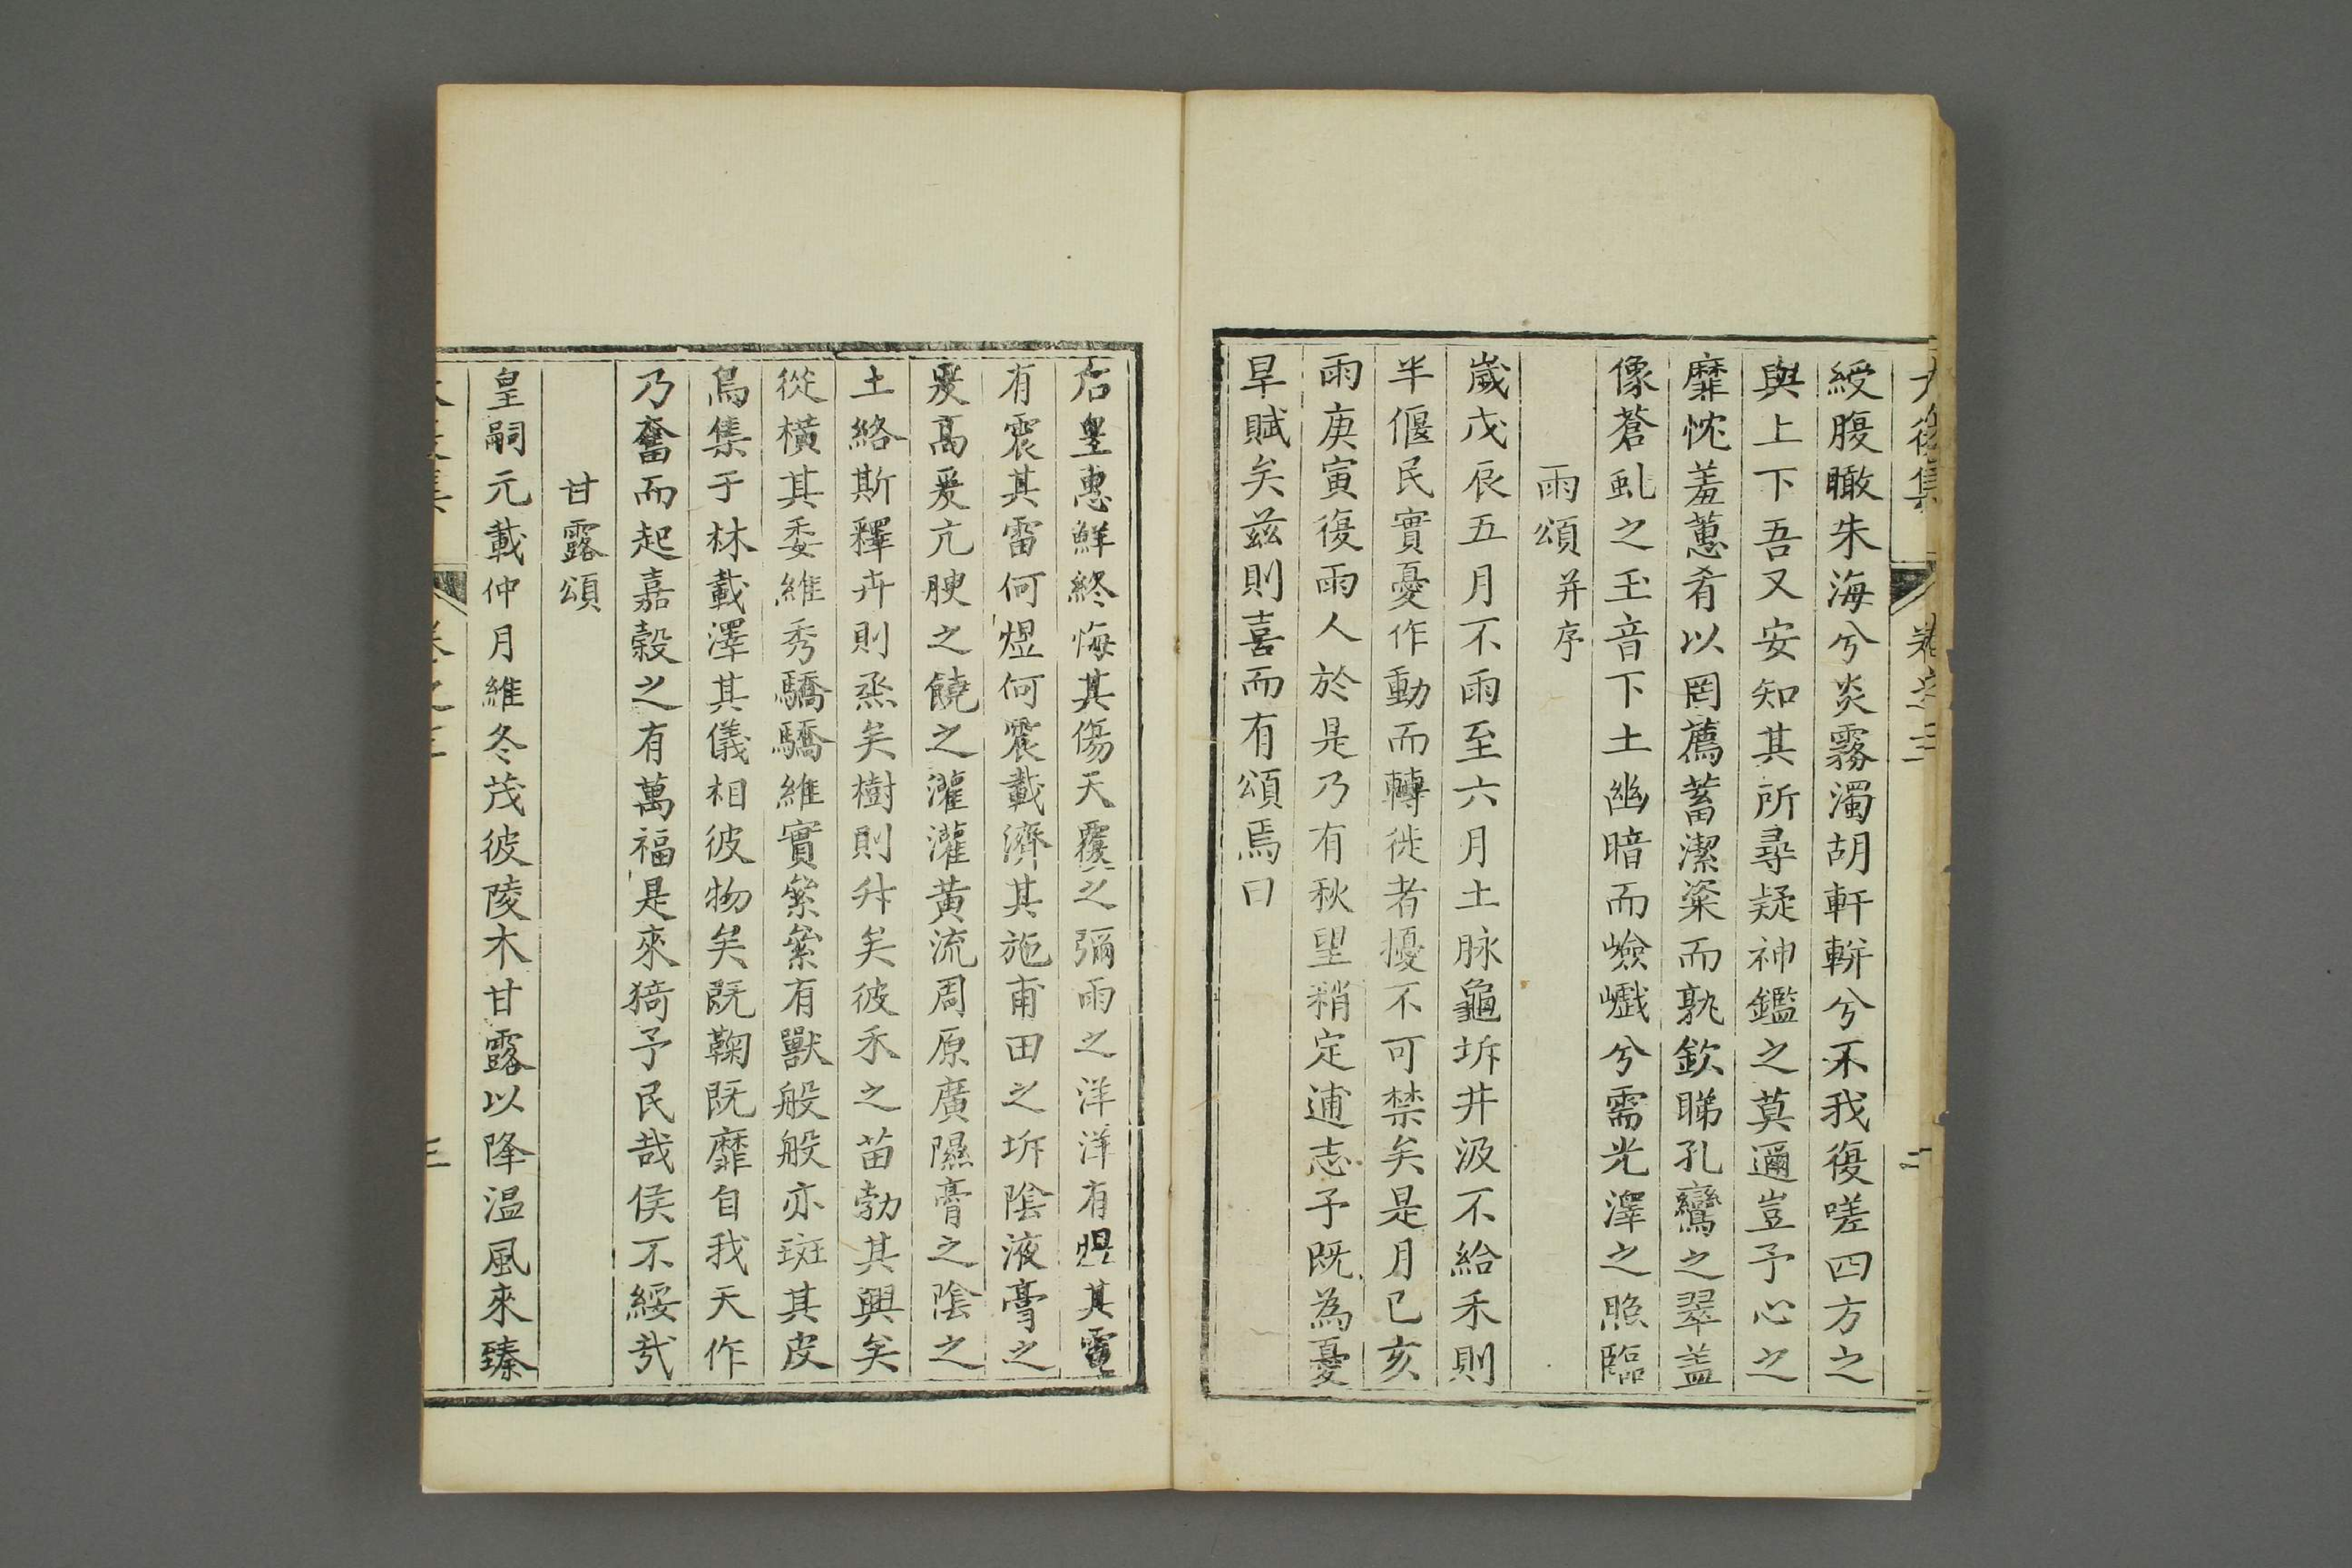 綬腹瞰朱海兮炎霧濁胡軒軿兮不我復嗟四方之
與上下吾又安知其所尋疑神鑑之莫邇豈予心之
靡忱羞蕙肴以罔薦蓄潔粢而孰欽睇孔鸞之翠盖
像蒼虬之玉音下土幽暗而嶮巇兮需光澤之照臨
雨頌并序
歲戊辰五月不雨至六月土脉龜坼井汲不給禾則
半偃民實憂作動而轉徙者擾不可禁矣是月己亥
雨庚寅復雨人於是乃有秋望稍定逋志予既為憂
旱賦矣兹則喜而有頌焉曰
后皇惠鮮終悔其傷天覆之彌雨之洋洋有焜其電
有震其雷何焜何震載濟其施甫田之坼陰液膏之
爰高爰亢腴之饒之灌灌黃流周原廣隰膏之陰之
土絡斯釋卉則烝矣樹則升矣彼禾之苗勃其興矣
從橫其委維秀驕驕維實縈縈有獸般般亦斑其皮
鳥集于林載澤其儀相彼物矣既鞠既靡自我天作
乃奮而起嘉穀之有萬福是來猗予民哉侯不綏哉
甘露頌
皇嗣元載仲月維冬茂彼陵木甘露以降温風來臻
卷之三
三